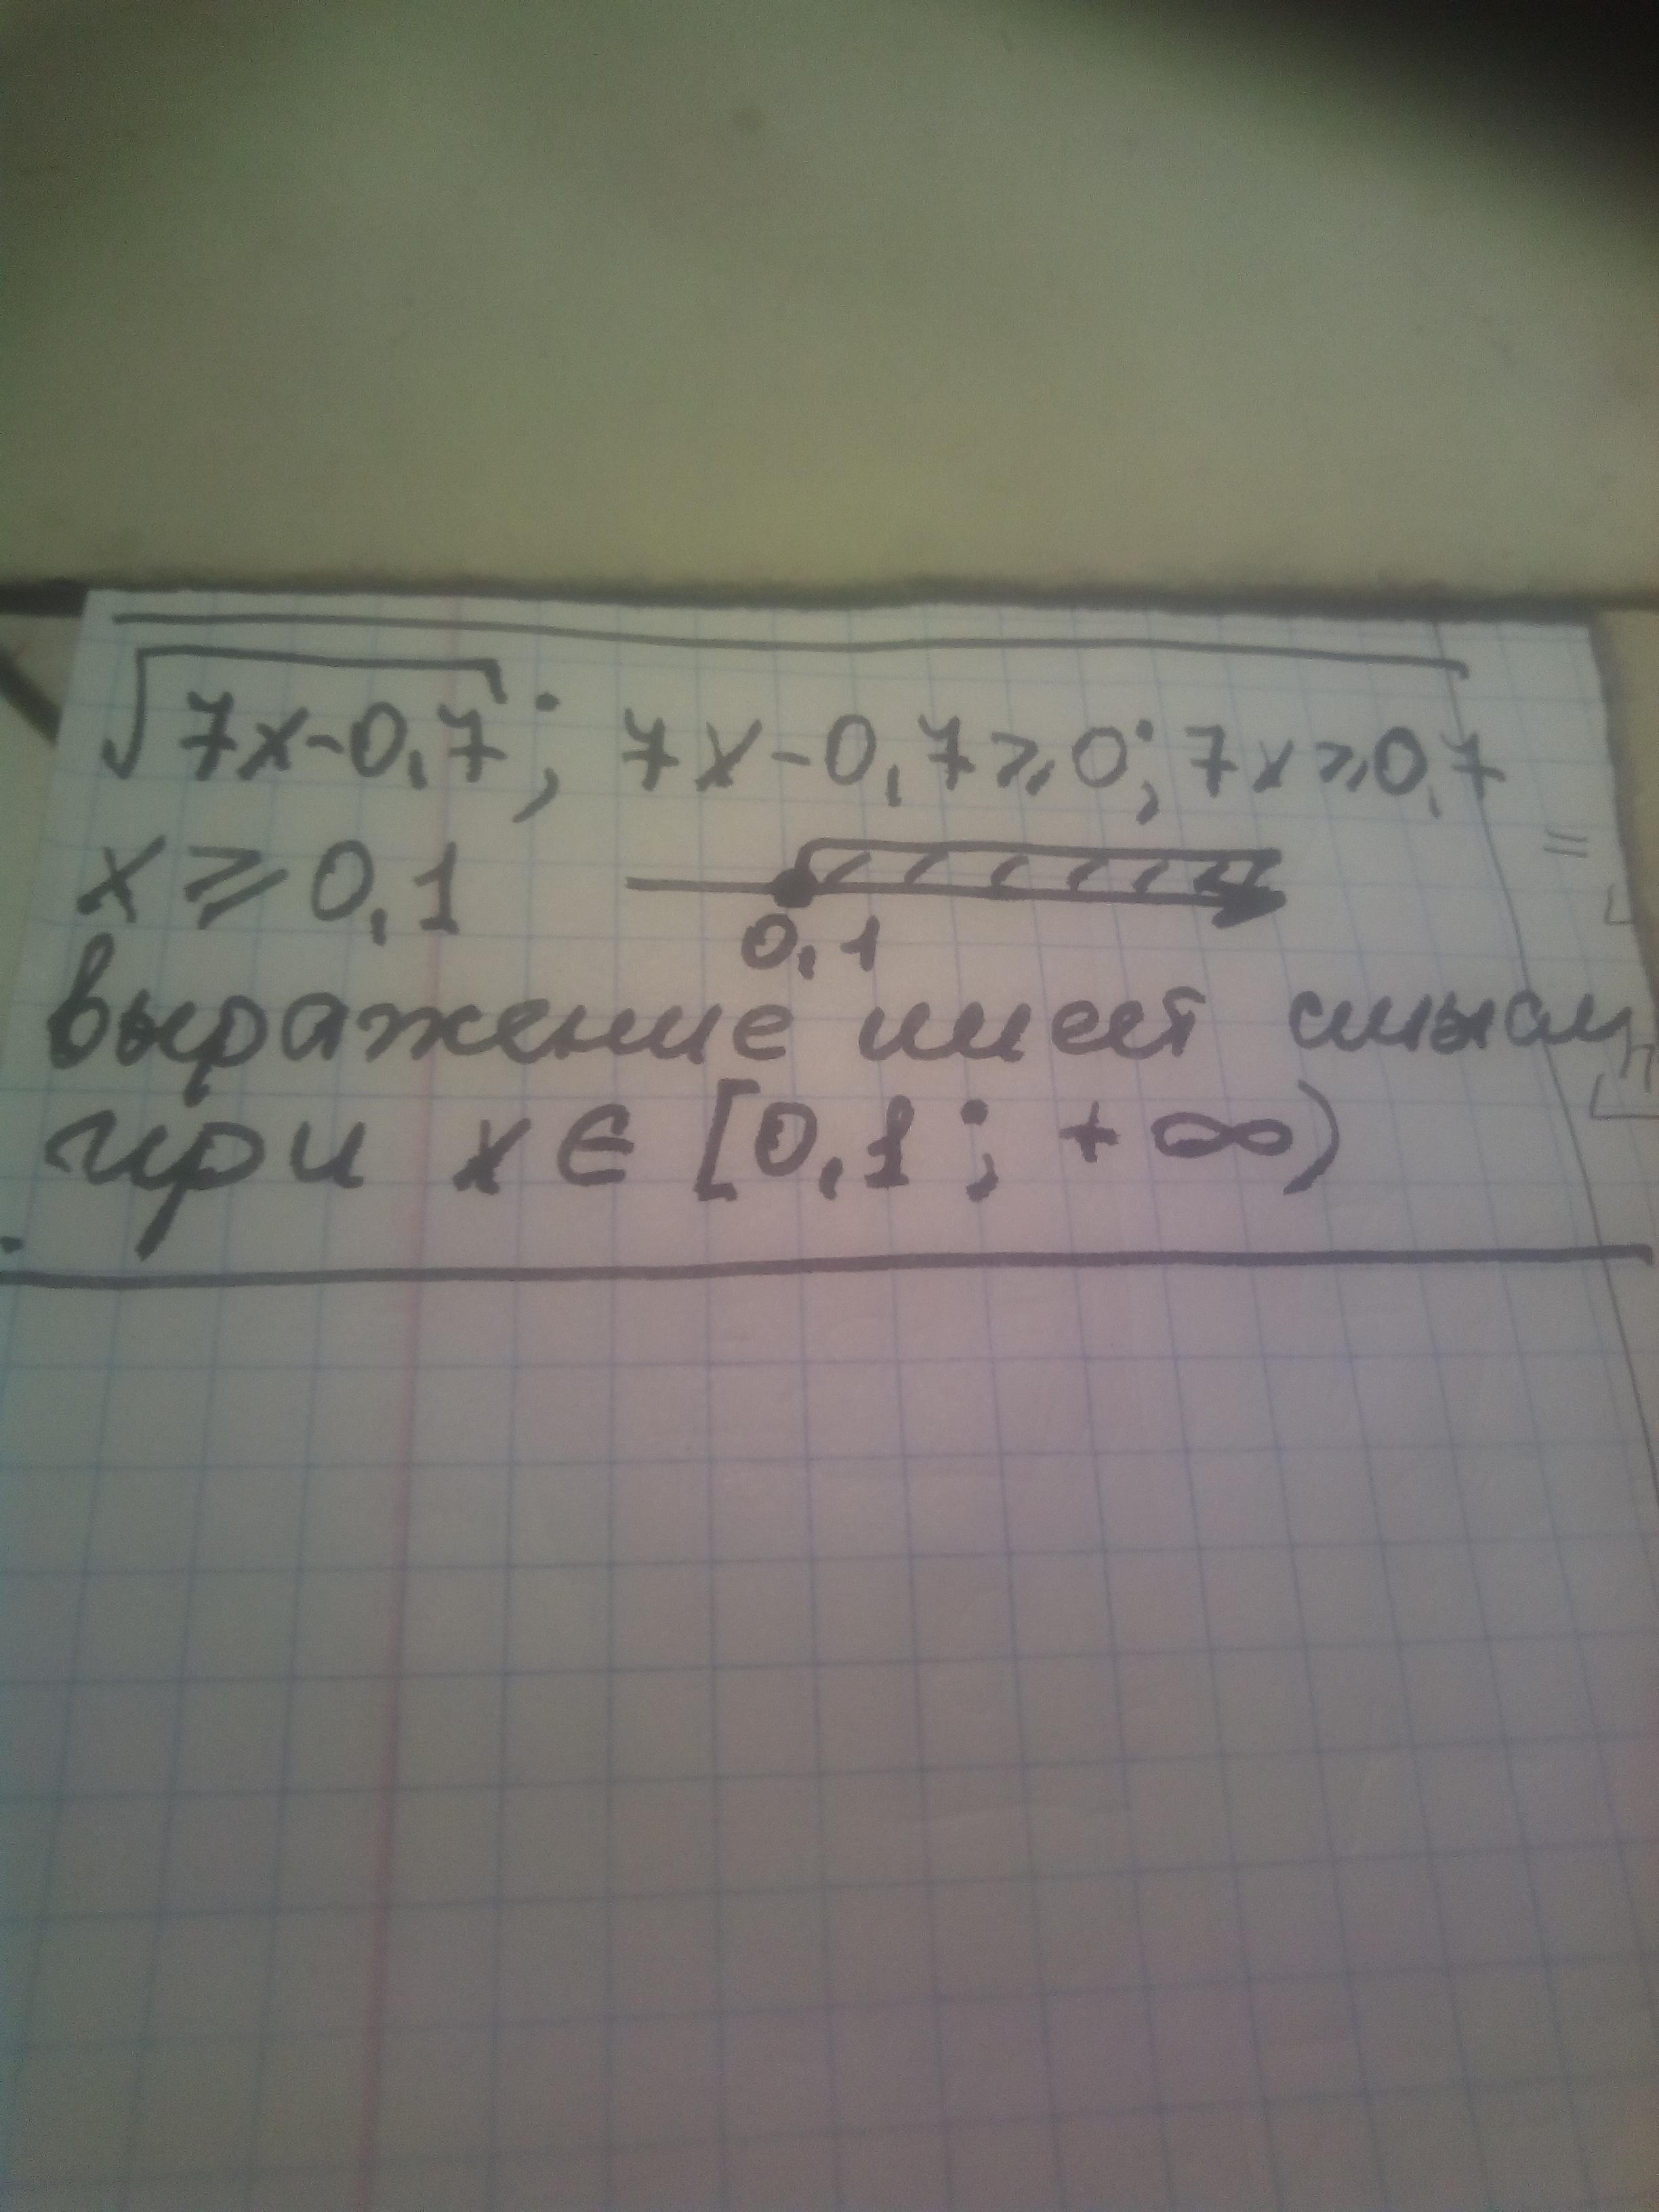 √7x-0,7; 7x-0,7⩾0; 7x⩾0,7
x⩾0,1
0,1
выражение имеет смысл
при x∈[0,1; +∞)